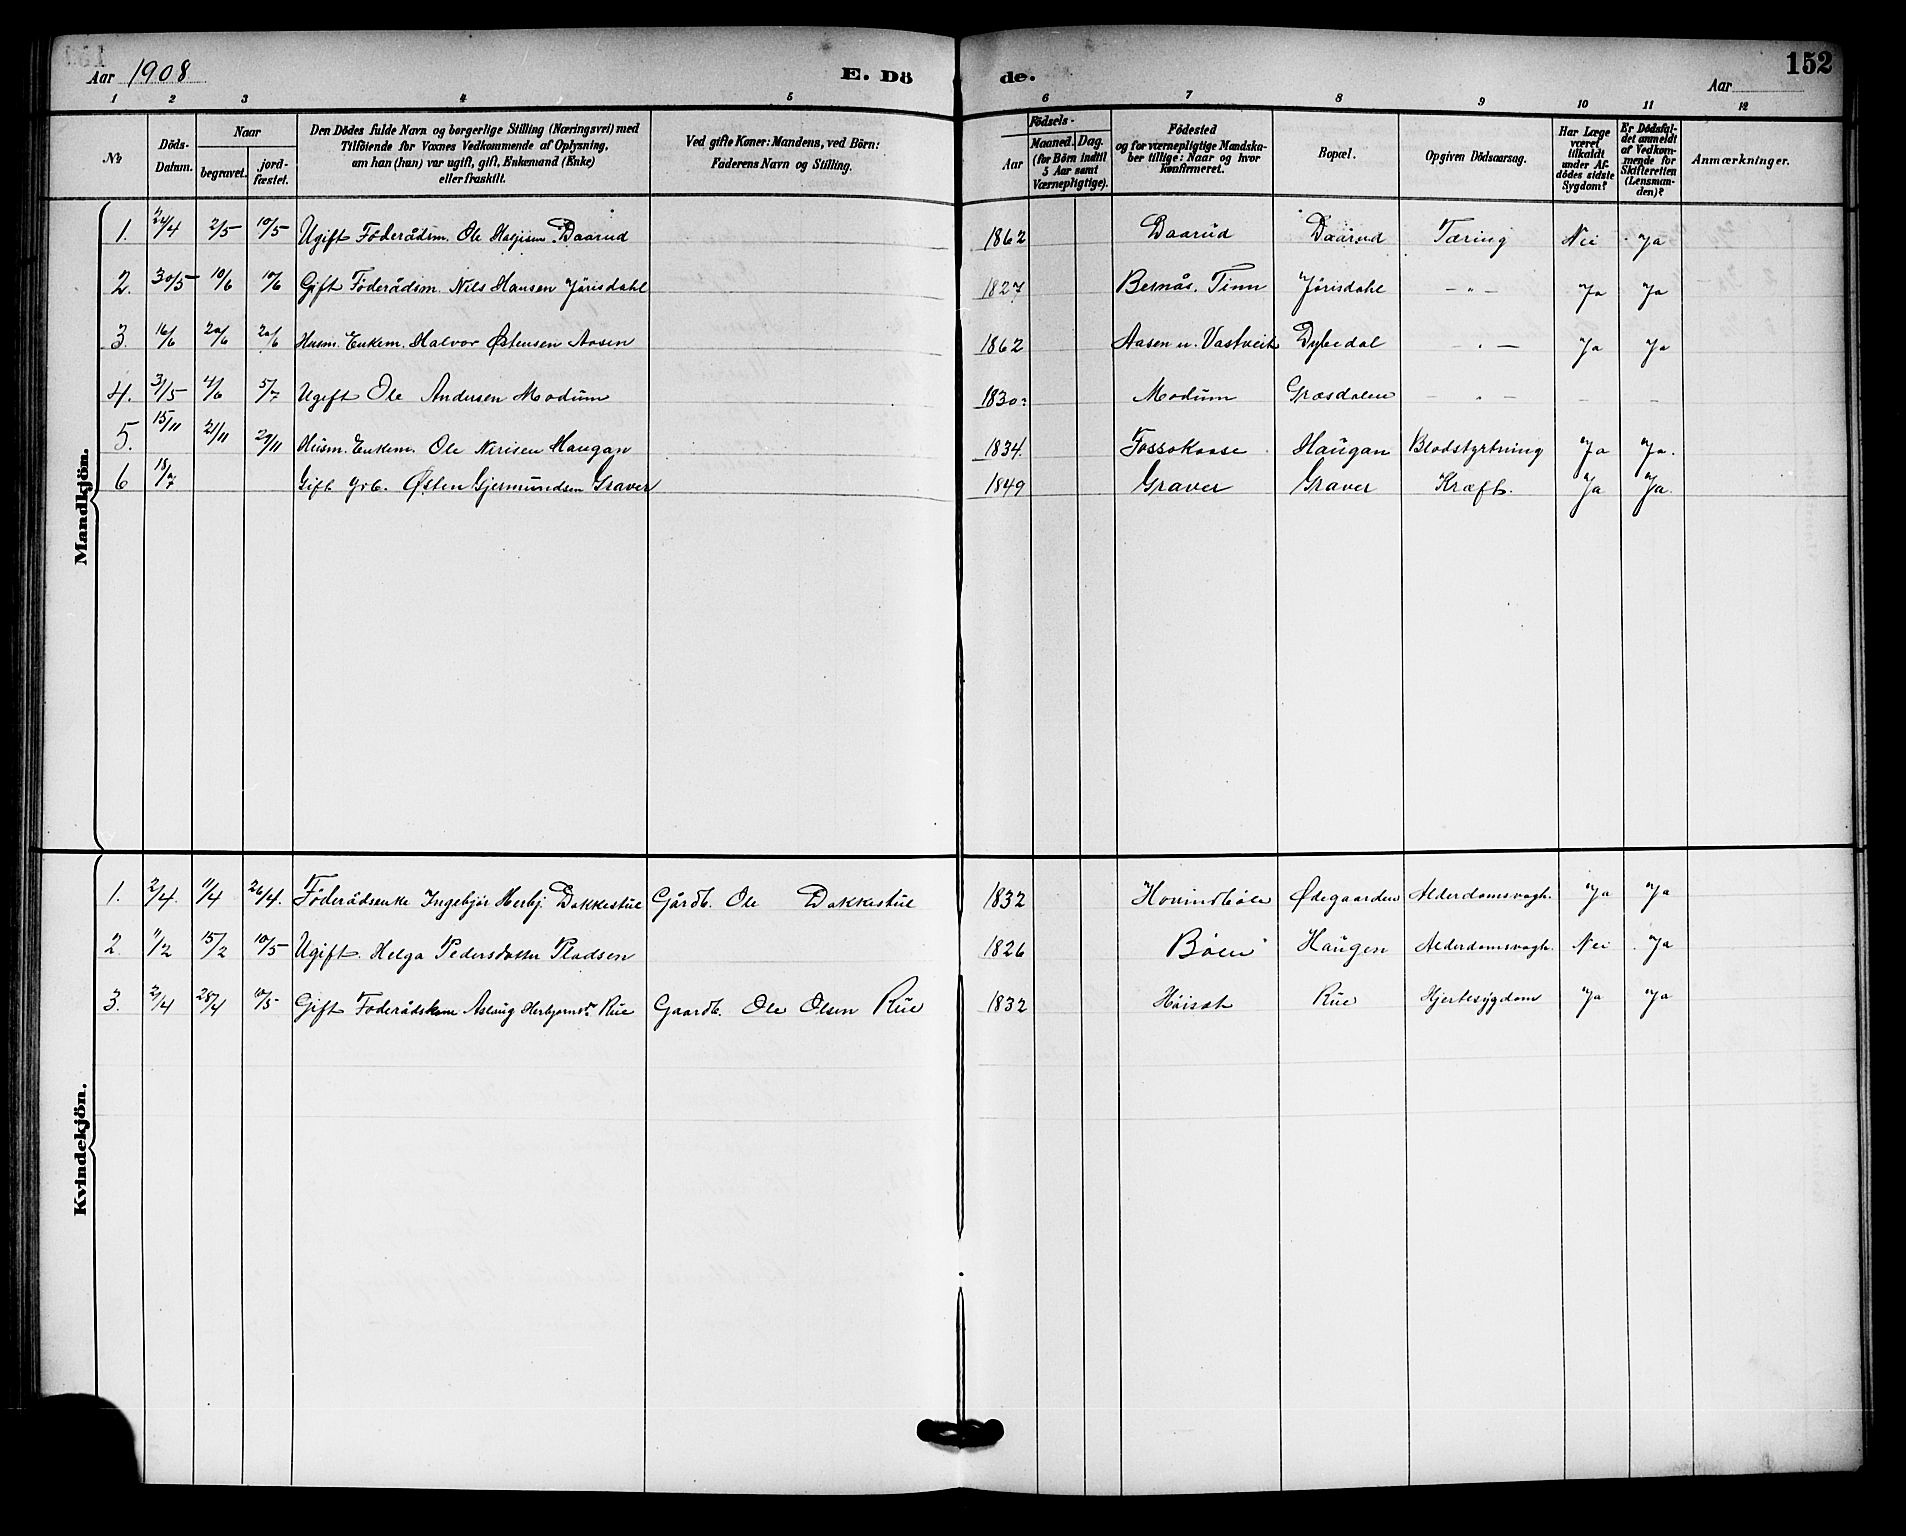 Aar 1908
E. Dö de.
Aar
152
1 2 3 4 5 6 7 8 9 10 11 12
No
Döds-Datum.
Naar
begravet.
jord-fæstet.
Den Dödes fulde Navn og borgerlige Stilling (Næringsvei) med
Tilföiende for Voxnes Vedkommende af Oplysning,
om han (hun) var ugift, gift, Enkemand (Enke)
eller fraskilt.
Ved gifte Koner: Mandens, ved Börn:
Faderens Navn og Stilling.
Födsels-
Aar
Maaned. Dag.
(for Börn indtil
5 Aar samt
Værnepligtige).
Födested
og for værnepligtige Mandska-
ber tillige: Naar og hvor
konfirmeret.
Bopæl.
Opgiven Dödsaarsag.
Har Læge
været
tilkaldt
under Af-
dödes sidste
Sygdom?
Er Dödsfal-
det anmeldt
af Vedkom-
mende for
Skifteretten
(Lensman-
den)?
Anmærkninger.
Mandkjön.
1. 24/4 2/5 10/5 Ugift Föderådsm. Ole Daarud 1862 Daarud Daarud Tæring Nei Ja
2. 30/5 10/6 10/6 Gift Föderådsm. Nils Hansen Jörisdahl 1827 Bernås. Tinn Jörisdahl – " – Ja Ja
3. 16/6 20/6 20/6 Husm. Enkem. Halvor Østensen Aasen 1862 Aasen u. Vastveit Dybedal – " – Ja Ja
4. 31/5 4/6 5/7 Ugift Ole Andersen Modum 1830? Modum Græsdalen – " – – –
5. 15/11 21/11 29/11 Husm. Enkem. Ole Nirisen Haugan 1834. Fossokaase Haugan Blodstyrtning Ja Ja.
6 18/7 Gift Grb. Østen Gjermundsen Graver 1849 Graver Graver Kræft. Ja Ja.
Kvindekjön.
1. 2/4. 11/4 26/4. Föderådsenke Ingebjör Herbj. Dakkestue Gårdb. Ole Dakkestue 1832 Hovindböle Ødegaarden Alderdomsvagh. Ja Ja
2 11/2 15/2 10/5 Ugift. Helga Pedersdatter Pladsen 1826 Böen Haugen Alderdomsvagh. Nei Ja
3. 21/4 28/4 10/5 Gift Föderådskone Aslaug Herbjørnsd. Rue Gaardb. Ole Olsen Rue 1832 Höisæt Rue Hjertesygdom Ja Ja